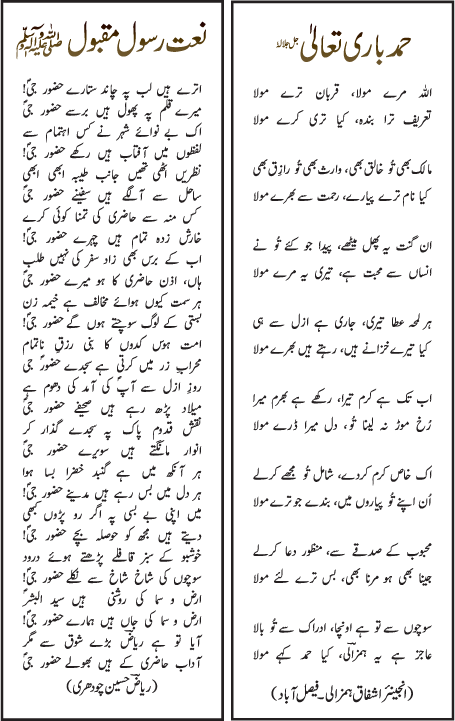 حمد باری تعالیٰ جل جلالہٗ
اللہ مرے مولا، قربان ترے مولا
تعریف ترا بندہ، کیا تری کرے مولا
مالک بھی تُو خالق بھی، وارث بھی تُو رازق بھی
کیا نام ترے پیارے، رحمت سے بھرے مولا
ان گنت یہ پھل میٹھے، پیدا جو کئے تُو نے
انساں سے محبت ہے، تیری یہ مرے مولا
ہر لمحہ عطا تیری، جاری ہے ازل سے ہی
کیا تیرے خزانے ہیں، رہتے ہیں بھرے مولا
اب تک ہے کرم تیرا، رکھے ہے بھرم میرا
رُخ موڑ نہ لینا تُو، دل میرا ڈرے مولا
اک خاص کرم کردے، شامل تُو مجھے کرلے
اُن اپنے تُو پیاروں میں، بندے جو ترے مولا
محبوب کے صدقے سے، منظور دعا کرلے
جینا بھی ہو مرنا بھی، بس ترے لئے مولا
سوچوں سے تو ہے اونچا، ادراک سے تُو بالا
عاجز ہے یہ ہمزالی، کیا حمد کہے مولا
(انجینئر اشفاق ہمزالی۔ فیصل آباد)
نعت رسول مقبول ﷺ
اترے ہیں لب پہ چاند ستارے حضور جیؐ!
میرے قلم پہ پھول ہیں برسے حضور جیؐ!
اک بے نوائے شہر نے کس اہتمام سے
لفظوں میں آفتاب ہیں رکھے حضور جیؐ!
نظریں اٹھی تھیں جانب طیبہ ابھی ابھی
ساحل سے آلگے ہیں سفینے حضور جیؐ!
کس منہ سے حاضری کی تمنا کوئی کرے
خارش زدہ تمام ہیں چہرے حضور جیؐ!
اب کے برس بھی زاد سفر کی نہیں طلب
ہاں، اذن حاضری کا ہو میرے حضور جیؐ!
ہر سمت کیوں ہوائے مخالف ہے خیمہ زن
بستی کے لوگ سوچتے ہوں گے حضور جیؐ!
امت ہوس کدوں کا بنی رزقِ ناتمام
محرابِ زر میں کرتی ہے سجدے حضور جیؐ
روزِ ازل سے آپؐ کی آمد کی دھوم ہے
میلاد پڑھ رہے ہیں صحیفے حضور جیؐ
نقش قدوم پاک پہ سجدے گذار کر
انوار مانگتے ہیں سویرے حضور جیؐ
ہر آنکھ میں ہے گنبد خضرا بسا ہوا
ہر دل میں بس رہے ہیں مدینے حضور جیؐ!
میں اپنی بے بسی پہ اگر رو پڑوں کبھی
دیتے ہیں مجھ کو حوصلہ بچے حضور جیؐ!
خوشبو کے سبز قافلے پڑھتے ہوئے درود
سوچوں کی شاخ شاخ سے نکلے حضور جیؐ!
ارض و سما کی روشنی ہیں سید البشرؐ
ارض و سما کی جاں ہیں ہمارے حضور جیؐ!
آیا تو ہے ریاضؔ بڑے شوق سے مگر
آداب حاضری کے ہیں بھولے حضور جیؐ
(ریاض حسین چودھری)